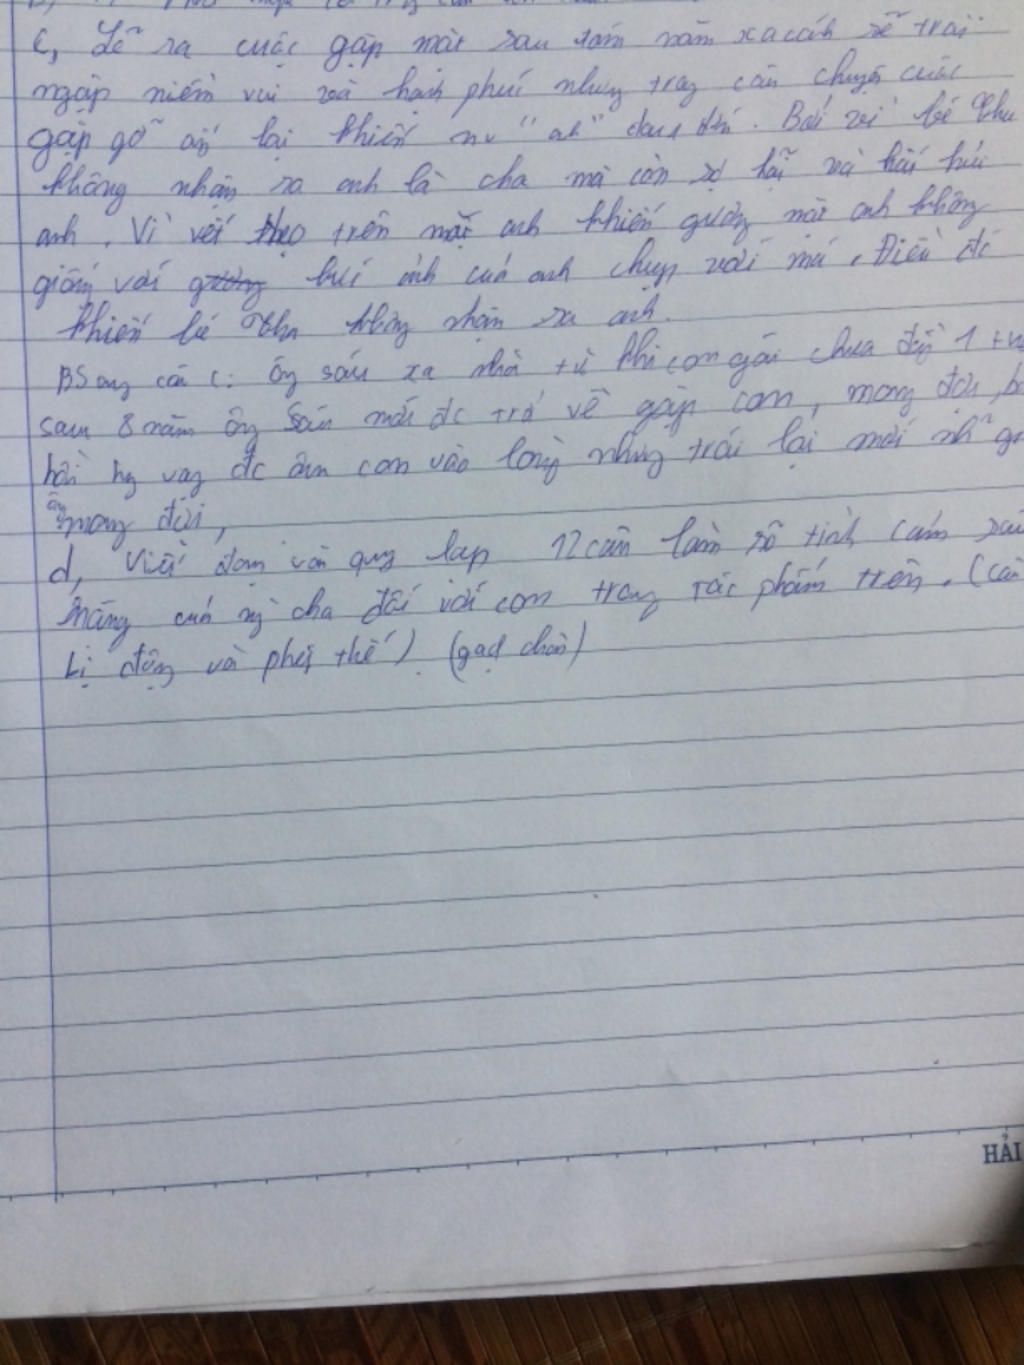 c, Lẽ ra cuộc gặp mặt sau tám năm xa cách sẽ trài
ngập niềm vui và hạnh phúc nhưng trong câu chuyện cuộc
gặp gỡ ấy lại khiến nv "anh" đau đớn. Bởi vì bé Thu
không nhận ra anh là cha mà còn sợ hãi và hắt hủi
anh. Vì vết thẹo trên mặt anh khiến gương mặt anh không
giống với bức ảnh của anh chụp với má. Điều đó
khiến bé Thu không nhận ra anh.
BSung câu c: Ông sáu xa nhà từ khi con gái chưa đầy 1 tuổi
sau 8 năm ông Sáu mới đc trở về gặp con, mong đợi,
hồi hy vọng đc ôm con vào lòng nhưng trái lại mới những
ông mong đợi,
d, Viết đoạn văn quy lạp 12 câu làm rõ tình cảm sâu
nặng của ng cha đối với con trong tác phẩm trên. (câu
bị động và phép thế) (gạch chân)
HẢI